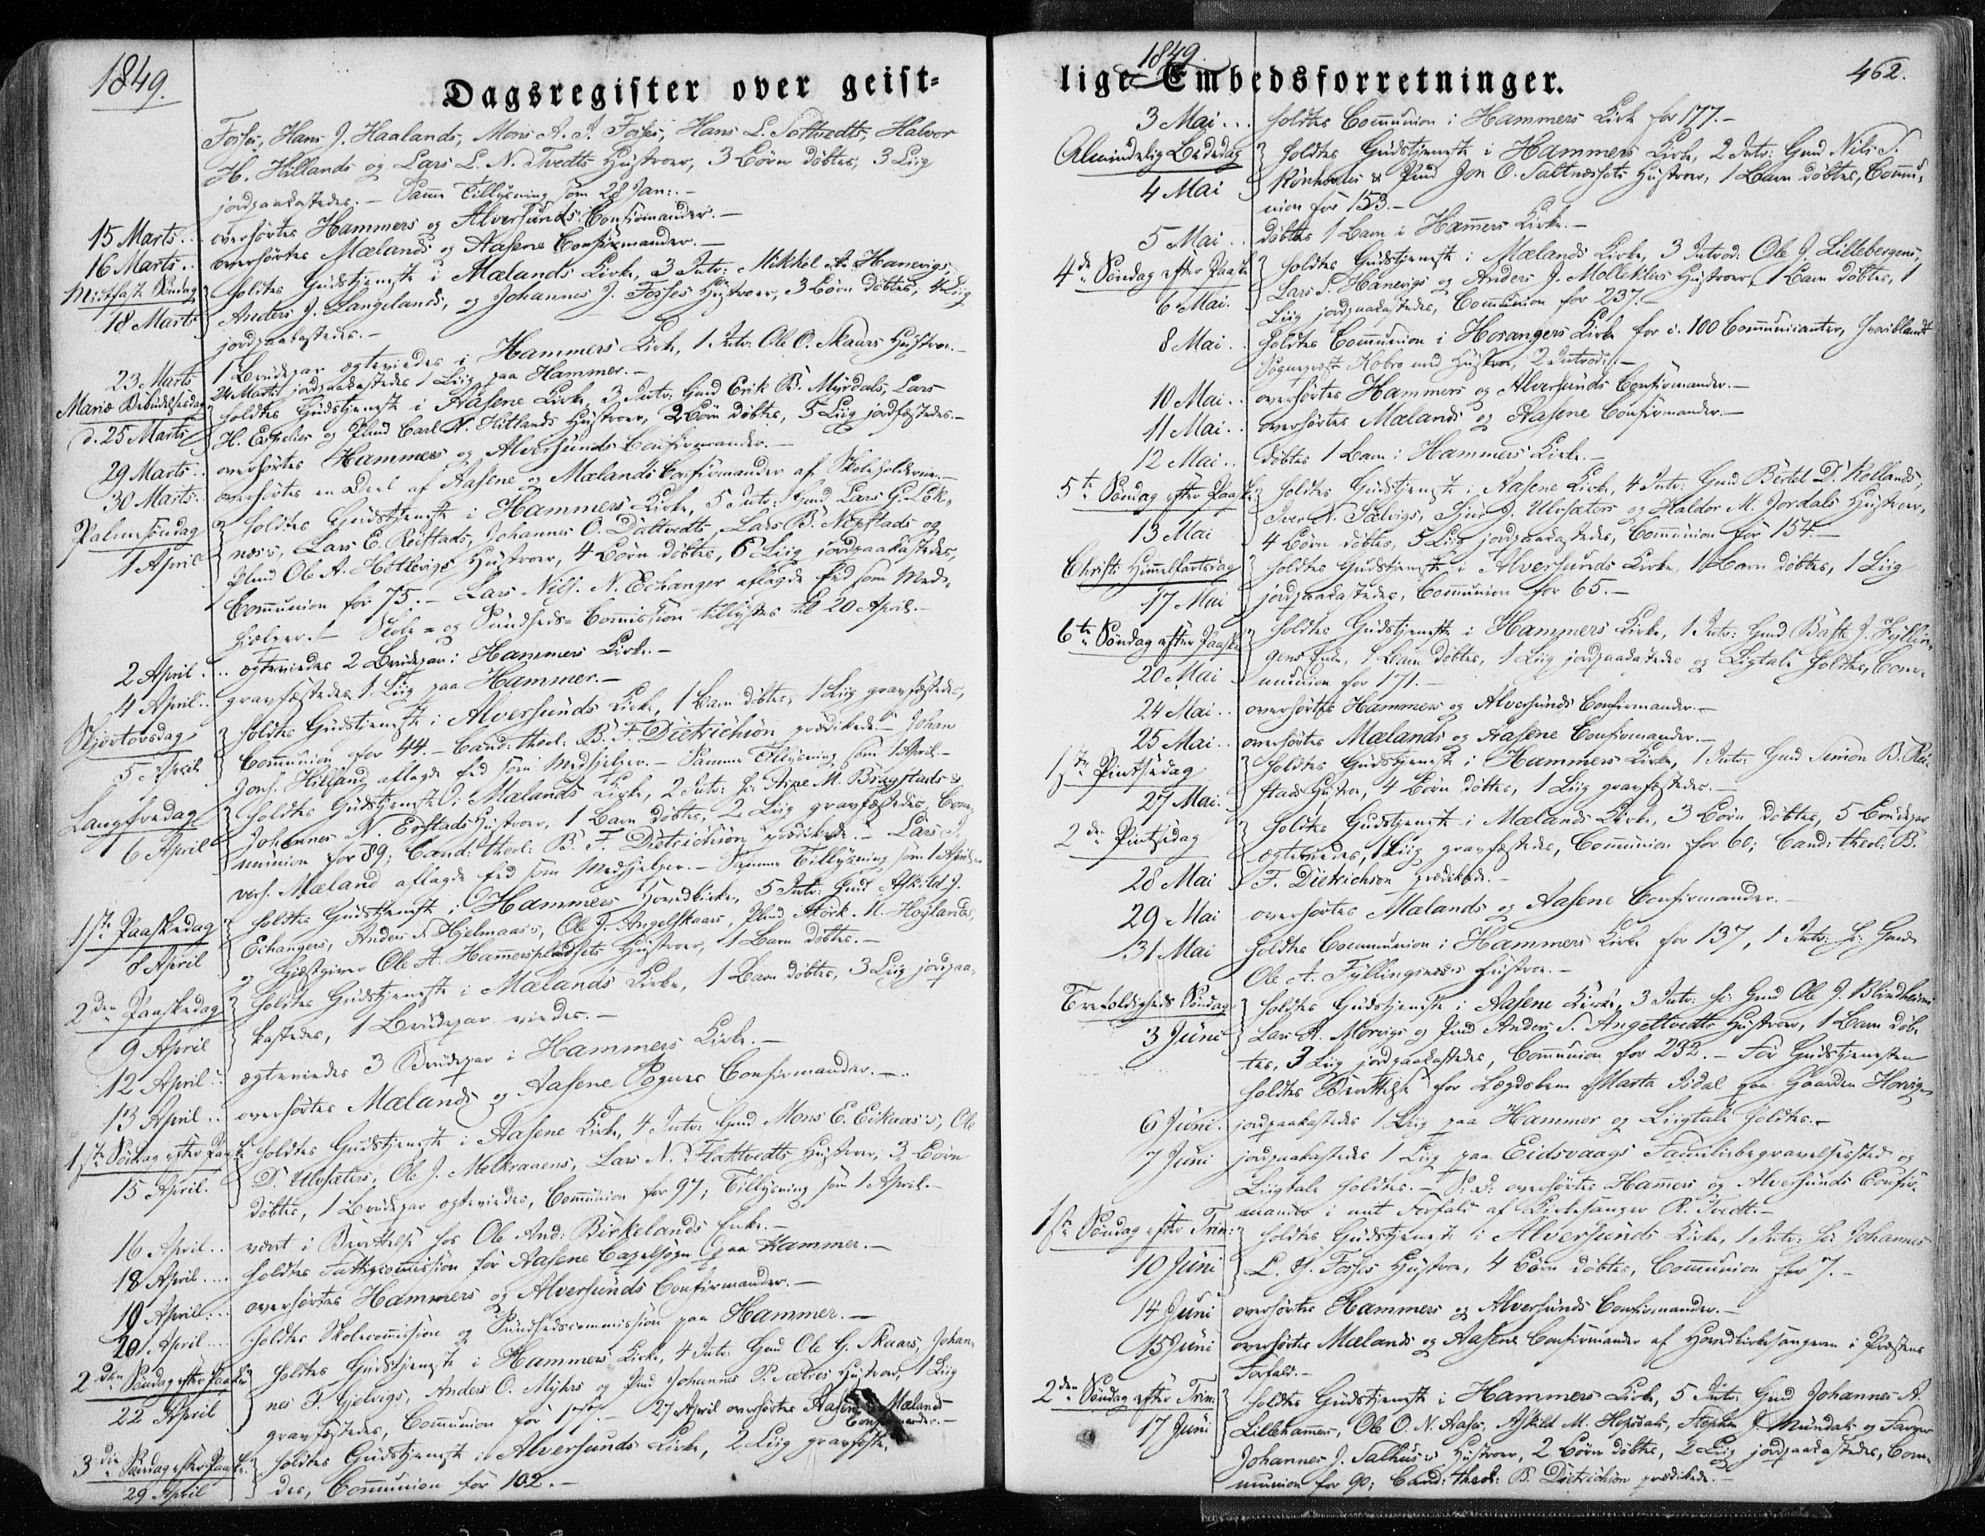 1849.
Dagsregister over geist-
Fosses, Hans J. Haalands, Mons A. J. Fosses, Hans L. Toftvedts, Halvor
H. Hillands og Lars L. N. Tvedts Hustroer, 3 Børn døbtes, 3 Liig
jordpaakastedes. - Samme Tillysning som 28 Jan:. -
15 Marts.. overhørtes Hammers og Alversunds Confirmander. -
16 Marts.. overhørtes Mælands og Aasene Confirmander. -
Midfaste Søndag holdtes Gudstjeneste i Mælands Kirke, 3 Intr: Mikkel A. Hanevigs,
18 Marts Anders J. Langelands, og Johannes J. Fosses Hustroer, 3 Børn døbtes, 4 Liig
jordpaakastedes. -
23 Marts 1 Brudepar egteviedes i Hammers Kirke, 1 Intr: Ole O. Skaars Hustroe. -
24 Marts jordpaakastedes 1 Liig paa Hammer. -
Mariæ Bebudelsesdag holdtes Gudstjeneste i Aasene Kirke, 3 Intr: Gmd Erik B. Myrdals, Lars
d. 25 Marts H. Espelies og Plmd Carl N. Hitlands Hustroer, 2 Børn døbtes, 5 Liig jordfæstedes. -
29 Marts.. overhørtes Hammers og Alversunds Confirmander. -
30 Marts.. overhørtes en Deel af Aasene og Mælands Confirmander af Skoleholderne. -
Palmesøndag holdtes Gudstjeneste i Hammers Kirke, 5 Intr: Gmd Lars G. Lek-
1 April næs's, Lars E. Reistads, Johannes O. Dattvedts, Lars B. Nepstads og
Plmd Ole A. Hottevigs Hustroer, 4 Børn døbtes, 6 Liig jordpaakastedes,
Communion for 75. - Lars Nils. N. Echanger aflagde Eed som Med-
hjelper. - Skole- og Sundheds-Commission tillystes til 20 April. -
2 April.. egteviedes 2 Brudepar i Hammers Kirke. -
4 April.. gravfæstedes 1 Liig paa Hammer. -
Skjertorsdag holdtes Gudstjeneste i Alversunds Kirke, 1 Barn døbtes, 1 Liig gravfæstedes,
5 April Communion for 44. - Cand: theol: B. F. Dietrichson prædikede. - Johan
Joh's. Hilland aflagde Eed som Medhjelper. - Samme Tillysning som 1 April -
Langfredag holdtes Gudstjeneste i Mælands Kirke, 2 Intr: H: Arne M. Brygstads &
6 April Johannes N. Erstads Hustroer, 1 Barn døbtes, 2 Liig gravfæstedes, Com-
munion for 89; Cand: theol: B. F. Dietrichson prædikede. - Lars J.
vers. Mæland aflagde Eed som Medhjelper. - Samme Tillysning som 1 April. -
1ste Paaskedag holdtes Gudstjeneste i Hammers Hovedkirke, 5 Intr: Gmd Askild J.
8 April Echangers, Anders S. Hjelmaas's, Ole J. Angelskaars, Plmd Størk. N. Hoylandets,
og Gjæstgiver Ole A. Hammerspladsets Hustroer, 1 Barn døbtes. -
2den Paaskedag holdtes Gudstjeneste i Mælands Kirke, 1 Barn døbtes, 3 Liig jordpaa-
9 April kastedes, 1 Brudepar viedes. -
12 April.. egteviedes 3 Brudepar i Hammers Kirke. -
13 April.. overhørtes Mælands og Aasene Sognes Confirmander. -
1ste Søndag efter Paaske holdtes Gudstjeneste i Aasene Kirke, 4 Intr: Gmd Mons E. Eikaas's, Ole
15 April. D. Ulvsæters, Ole J. Melkraaens, Lars N. Flatevedts Hustroer, 3 Børn
døbtes, 1 Brudepar egteviedes, Communion for 97; Tillysning som 1 April. -
16 April.. været i Besøgelse hos Ole And: Birkelands Enke. -
18 April.... holdtes Fattigcommission for Aasene Capelsogn paa Hammer. -
19 April... overhørtes Hammers og Alversunds Confirmander. -
20 April.... holdtes Skolecommission og Sundhedscommission paa Hammer. -
2den Søndag efter Paaske holdtes Gudstjeneste i Hammers Kirke, 4 Intr: Gmd Ole G. Skaars, Johan-
22 April nes P. Gjelvigs, Anders O. Myhrs og Plmd Johannes P. Sætres Hustroer, 1 Liig
gravfæstedes, Communion for - 27 April overhørtes Aasene & Mælands
Confirmander. -
3die Søndag efter Paaske holdtes Gudstjeneste i Alversunds Kirke, 2 Liig gravfæste-
29 April des, Communion for 102. -
1849.
lige Embedsforretninger.
462.
3 Mai... holdtes Communion i Hammers Kirke for 177. -
Almindelig Bededag holdtes Gudstjeneste i Hammers Kirke, 2 Intr: Gmd Nils S.
4 Mai Rønhovdes & Plmd Jon O. Saltnessets Hustroer, 1 Barn døbtes, Commu-
nion for 153. -
5 Mai.. døbtes 1 Barn i Hammers Kirke. -
4de Søndag efter Paaske holdtes Gudstjeneste i Mælands Kirke, 3 Introd: Ole J. Lillebergens,
6 Mai. Lars S. Hanevigs og Anders J. Mollekleivs Hustroer, 1 Barn døbtes, 1
Liig jordpaakastedes, Communion for 237. -
8 Mai.. holdtes Communion i Hosangers Kirke for c. 100 Communicanter, hvoriblandt
Sognepræst Kobro med Hustroe, 2 Introd:. -
10 Mai.. overhørtes Hammers og Alversunds Confirmander. -
11 Mai.. overhørtes Mælands og Aasene Confirmander. -
12 Mai.. døbtes 1 Barn i Hammers Kirke. -
5te Søndag efter Paaske holdtes Gudstjeneste i Aasene Kirke, 4 Intr: Gmd Bertel D. Rollands,
13 Mai Iver N. Sælvigs, Sjur J. Ulvsæters og Haldor M. Jordals Hustroer,
4 Børn døbtes, 5 Liig jordpaakastedes, Communion for 154. -
Christi Himmelfartsdag holdtes Gudstjeneste i Alversunds Kirke, 1 Barn døbtes, 1 Liig
17 Mai jordpaakastedes, Communion for 65. -
6te Søndag efter Paaske holdtes Gudstjeneste i Hammers Kirke, 1 Intr: Gmd Baste J. Fyllin-
20 Mai gens Enke, 1 Barn døbtes, 1 Liig jordpaakastedes og Liigtale holdtes, Com-
munion for 171. -
24 Mai.. overhørtes Hammers og Alversunds Confirmander. -
25 Mai.. overhørtes Mælands og Aasene Confirmander. -
1ste Pintsedag holdtes Gudstjeneste i Hammers Kirke, 1 Intr: Gmd Simon B. Rei-
27 Mai. stads Hustroe, 4 Børn døbtes, 1 Liig gravfæstedes. -
2den Pintsedag holdtes Gudstjeneste i Mælands Kirke, 3 Børn døbtes, 5 Brudepar
28 Mai egteviedes, 1 Liig gravfæstedes, Communion for 60; Cand: theol: B.
F. Dietrichson prædikede. -
29 Mai overhørtes Mælands og Aasene Confirmander. -
31 Mai holdtes Communion i Hammers Kirke for 137, 1 Intr: H: Gmd
Ole A. Fyllingsnæs's Hustroe. -
Trefoldigheds Søndag holdtes Gudstjeneste i Aasene Kirke, 3 Intr: H: Gmd Ole J. Blindheims
3 Juni Lars A. Morvigs og Plmd Anders S. Angeltvedts Hustroer, 1 Barn døb-
tes, 3 Liig jordpaakastedes, Communion for 232. - Før Gudstjenesten
holdtes Brøttelse for Lægdslem Marta Isdal paa Gaarden Horvig
6 Juni. jordpaakastedes 1 Liig paa Hammer og Liigtale holdtes. -
7 Juni jordpaakastedes 1 Liig paa Eidsvaags Familiebegravelsessted og
Liigtale holdtes. - S: D: overhørtes Hammers og Alversunds Confir-
mander i mit Forfald af Kirkesanger R. Tvedt. -
1ste Søndag efter Trin: holdtes Gudstjeneste i Alversunds Kirke, 1 Intr: H: Johannes
10 Juni L. H. Fosses Hustroe, 4 Børn døbtes, Communion for 7. -
14 Juni overhørtes Hammers og Alversunds Confirmander. -
15 Juni overhørtes Mælands og Aasene Confirmander af Hovedkirkesangeren i Præstens
Forfald. -
2den Søndag efter Trin: holdtes Gudstjeneste i Hammers Kirke, 5 Intr: Gmd Johannes A.
17 Juni Lillehammers, Ole O. N. Aases, Askild M. Hopsdals, Stephen J. Mundals og Farver
Johannes J. Salhus's Hustroer, 2 Børn døbtes, 2 Liig jordpaakastedes, Com-
munion for 90; Cand: theol: B. Dietrichson prædikede. -